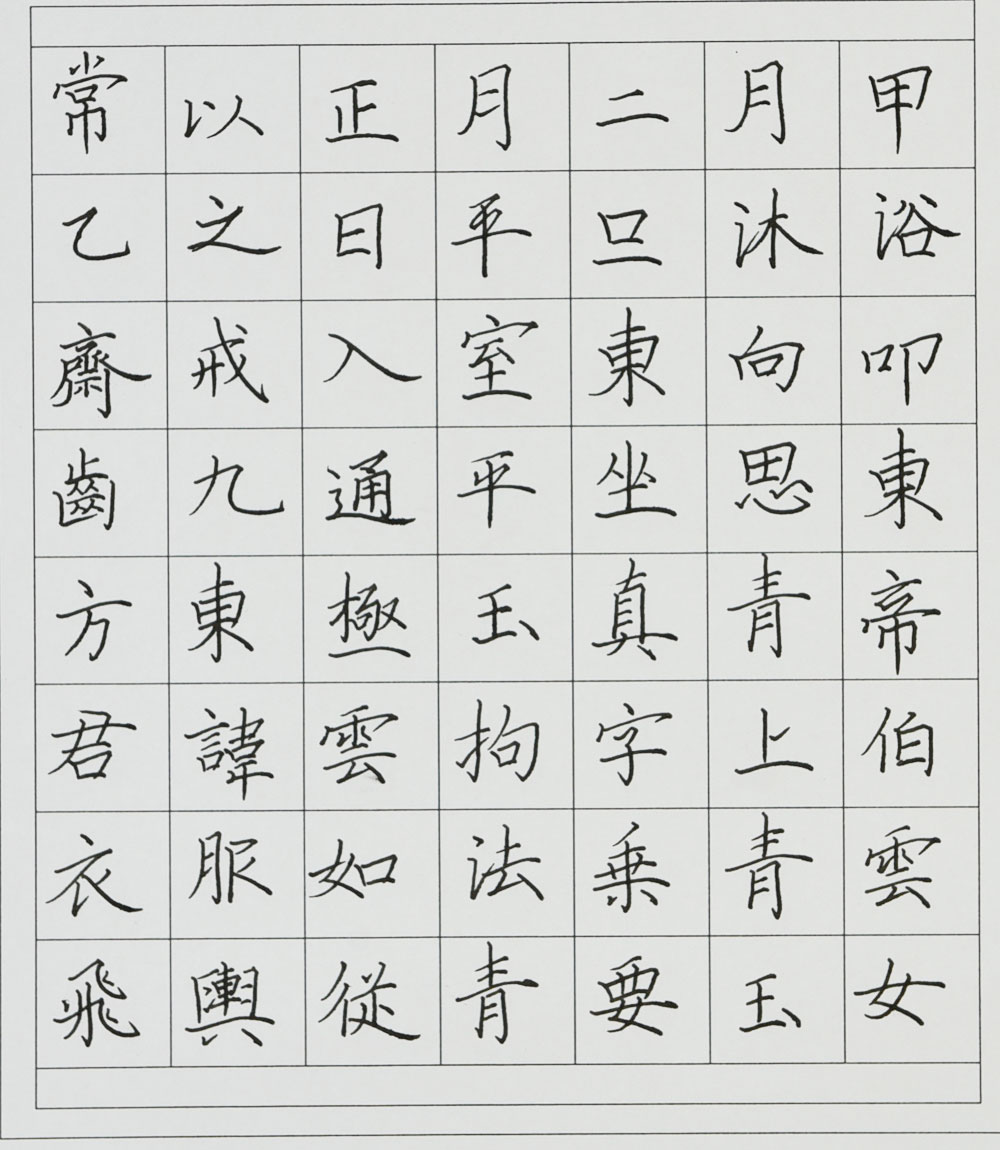 常以正月二月甲
乙之日平旦沐浴
齋戒入室東向叩
齒九通平坐思東
方東極玉真青帝
君諱雲拘字上伯
衣服如法乗青雲
飛輿從青要玉女